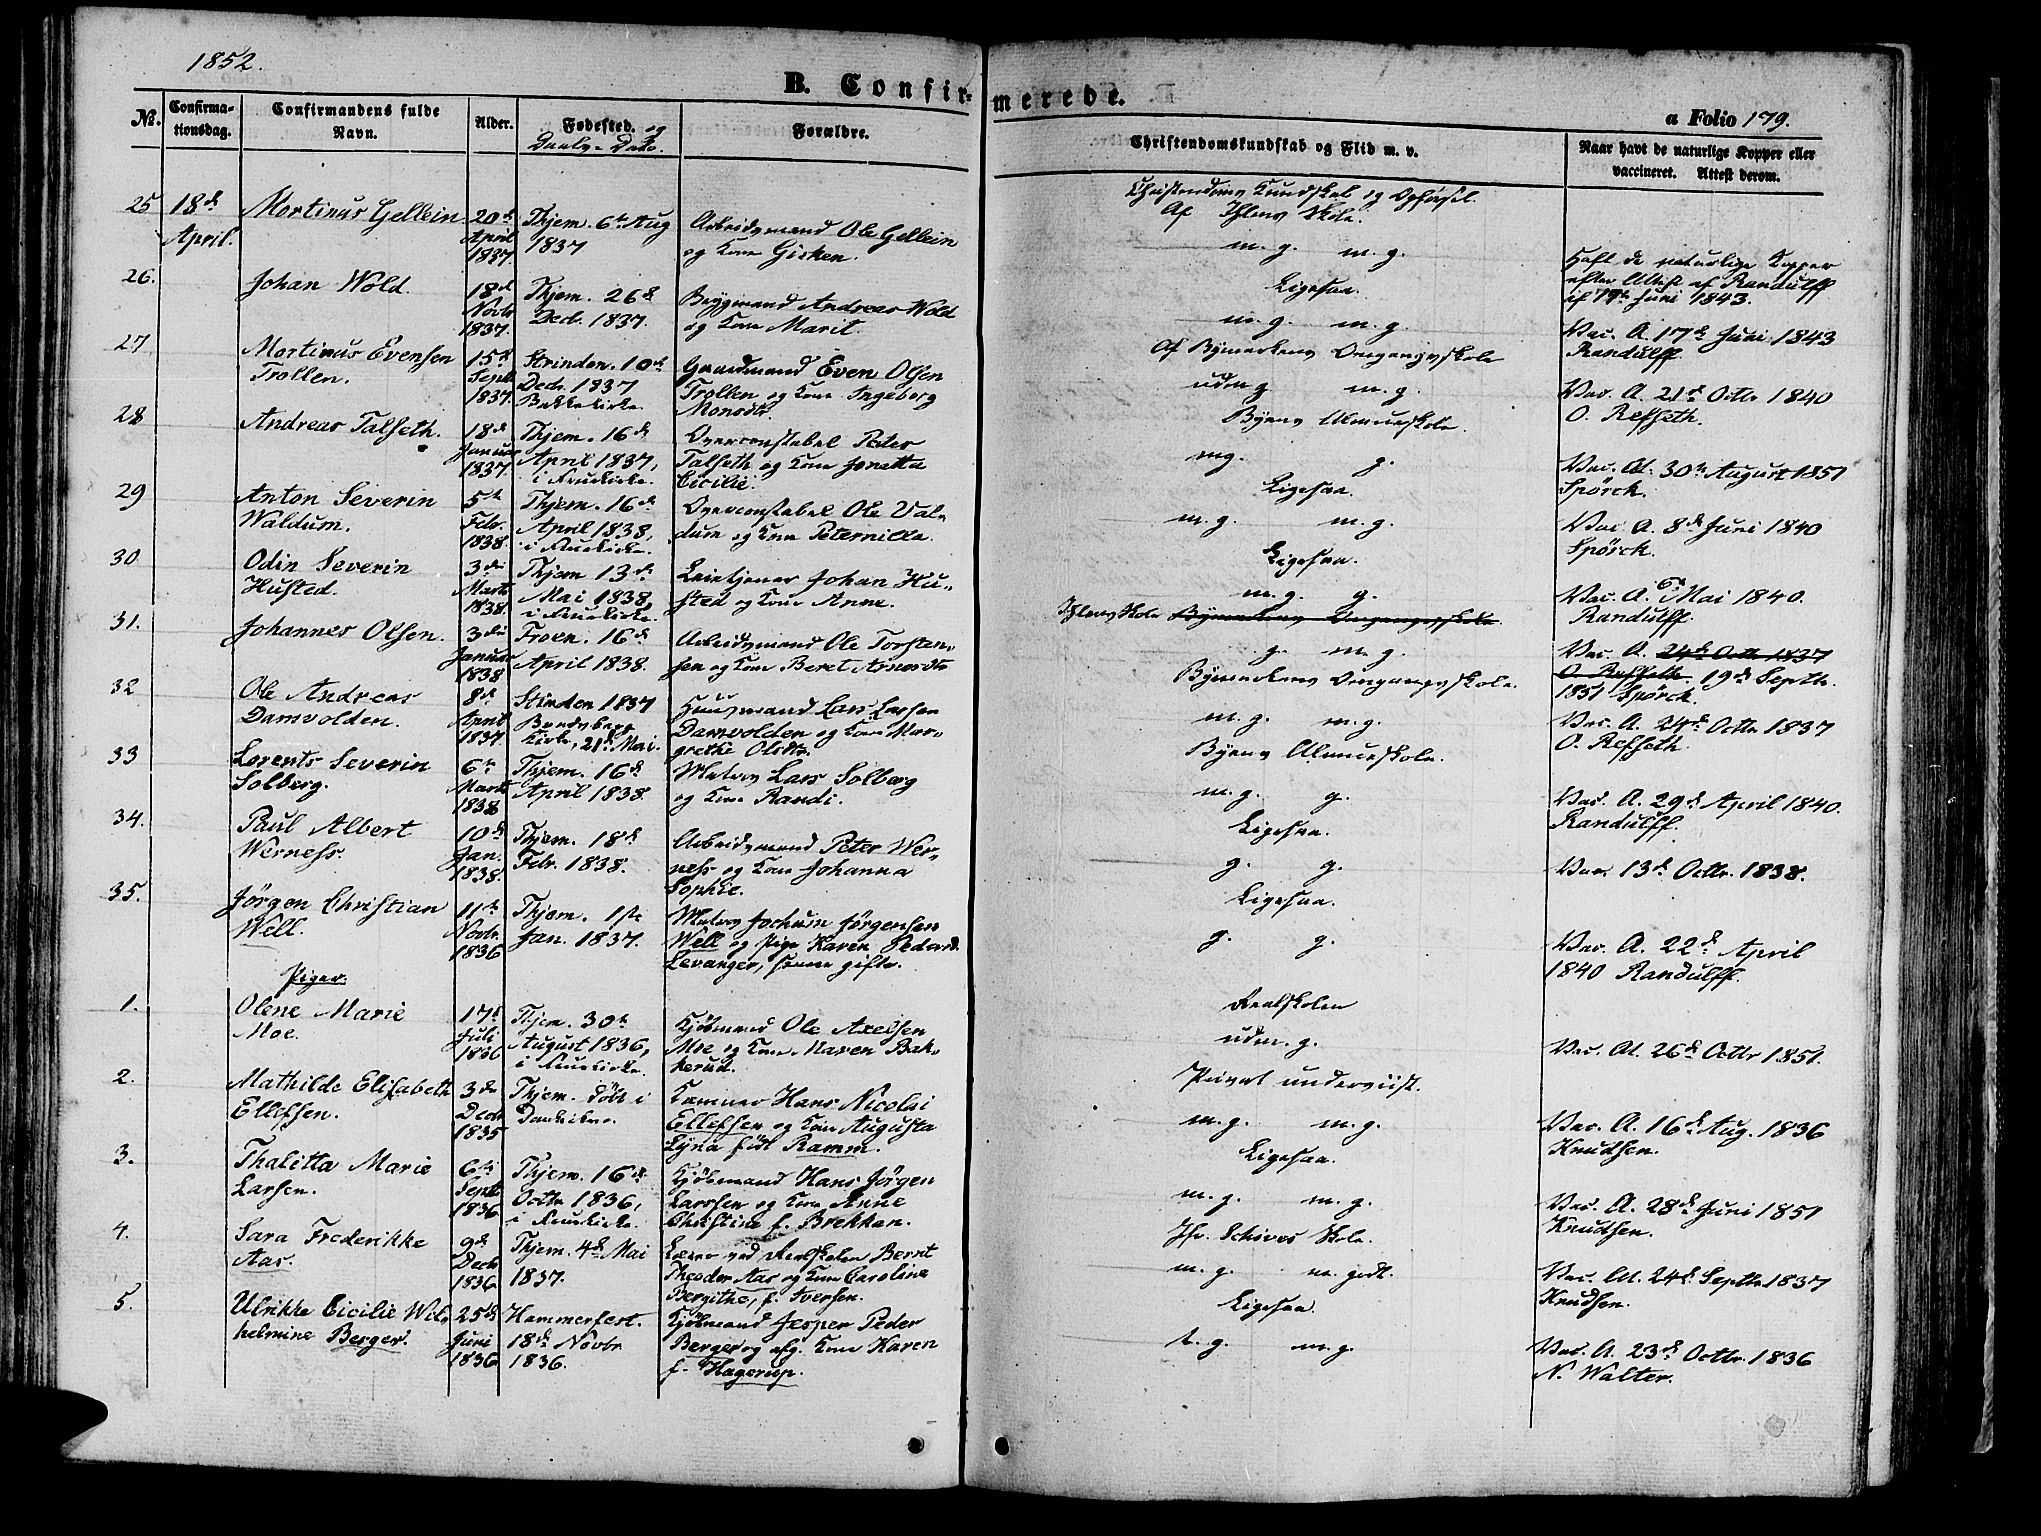 1852.
B. Confir-
merede.
a Folio 179.
No.
Confirma-
tionsdag.
Confirmandens fulde
Navn.
Alder.
Fødested. og
Daabs-Dato.
Forældre.
Christendomskundskab og Flid m. v.
Naar havt de naturlige Kopper eller
vaccineret. Attest derom.
Christendoms Kundskab og Opførsel.
Af Ihlens Skole.
25
18de
April.
Mortinus Gellein
20de
April
1837.
Thjem. 6te Aug
1837
Arbeidsmand Ole Gellein
og Kone Gisken.
m. g. m. g.
Haft de naturlige Kopper
efter Attest af Randulff
af 17de Juni 1843.
26.
Johan Wold.
18de
Novbr
1837.
Thjem. 26de
Decb. 1837.
Bygmand Andreas Wold
og Kone Marit.
Ligesaa.
m. g. m. g.
Vac. A. 17de Juni 1843
Randulff.
27
Mortinus Evensen
Trollen.
15de
Sept
1837.
Strinden. 10de
Decbr. 1837
Bakkekirke.
Gaardmand Even Olsen
Trollen og Kone Ingeborg
Monsdtr.
Af Bymarkens Omgangsskole
udm g m. g.
Vac. A. 21de Octbr 1840
O. Refseth.
28
Andreas Talseth.
18de
Januar
1837.
Thjem. 16de
April 1837,
i Fruekirke.
Overconstabel Peter
Talseth og Kone Jonetta
Cicilie.
Byens Almueskole.
mg. g.
Vac. At. 30te August 1851
Spörck.
29
Anton Severin
Waldum.
5te
Febr.
1838.
Thjem. 16de
April 1838,
i Fruekirke.
Overconstabel Ole Val-
dum og Kone Peternilla.
Ligesaa.
m. g. m. g.
Vac A. 8de Juni 1840
Spörck.
30
Odin Severin
Husted.
3die
Marts
1838.
Thjem 13de
Mai 1838,
i Fruekirke.
Leietjener Johan Hu-
sted og Kone Anne.
Ligesaa.
m. g. g.
Vac. A. 6te Mai 1840.
Randulff.
31.
Johannes Olsen.
3die
Januar
1838
Froen. 16de
April 1838.
Arbeidsmand Ole Torsten-
sen og Kone Beret Arnsdtr
Ihlens Skole Bymarkens Omgangsskole.
g. m. g.
Vac. A. 24de Octb 1837
O. Refseth. 19de Septbr.
1851 Spörck.
32
Ole Andreas
Damvolden.
8de
April
1837.
Strinden 1837
Bynæs
Kirke, 21de Mai.
Huusmand Lars Larsen
Damvolden og Kone Mar-
grethe Olsdtr.
Bymarkens Omgangsskole.
m. g. m. g.
Vac. A. 24de Octbr 1837
O. Refseth.
33
Lorents Severin
Solberg.
6te
Marts
1838
Thjem. 16de
April 1838.
Matros Lars Solberg
og Kone Randi.
Byens Almueskole.
m. g. g.
Vac. A. 29de April 1840.
Randulff.
34.
Paul Albert
Werness.
10de
Jan.
1838.
Thjem. 18de
Febr. 1838.
Arbeidsmand Peter Wer-
ness og Kone Johanna
Sophie.
Ligesaa.
g. g.
Vac. 13de Octbr. 1838.
35.
Jørgen Christian
Well.
11te
Novbr.
1836
Thjem. 1ste
Jan. 1837.
Matros Jochum Jørgensen
Well og Pige Karen Pedersd.
Levanger, senere gifte.
Ligesaa.
g. g.
Vac. A. 22de April
1840 Randulff.
Piger.
1.
Olene Marie
Moe.
17de
Juli
1836
Thjem. 30te
August 1836,
i Fruekirke.
Kjøbmand Ole Axelsen
Moe og Kone Maren Bak-
kerud.
Realskolen
udm. g.
Vac. At. 26de Octbr 1851.
2.
Mathilde Elisabeth
Ellefsen.
3die
Decbr
1835
Thjem. Døbt i
Domkirken.
Kæmner Hans Nicolai
Ellefsen og Kone Augusta
Lyna født Ramm.
Privat underviist.
m. g. m. g.
Vac. A. 16de Aug. 1836
Knudsen.
3.
Thalitta Marie
Larsen.
6te
Septb
1836
Thjem. 16de
Octbr 1836,
i Fruekirke.
Kjøbmand Hans Jørgen
Larssen og Kone Anne
Christine f. Brekkan.
Ligesaa.
m. g. m. g.
Vac. A. 28de Juni 1851
Knudsen.
4.
Sara Frederikke
Aas.
9de
Decb
1836
Thjem. 4de Mai
1837.
Lærer ved Realskolen Bernt
Theodor Aas og Kone Caroline
Bergithe, f. Iversen.
Jfr. Schives Skole.
m. g. m. godt.
Vac. At. 24de Septbr 1837
Knudsen.
5.
Ulrikke Cicilie Wil-
helmine Berger.
25de
Juni
1836
Hammerfest.
18de Novbr
1836.
Kjøbmand Jesper Peder
Berger og afg. Kone Karen
f. Hagerup.
Ligesaa.
t. g. m. g.
Vac. A. 23de Octbr. 1836
N. Walter.